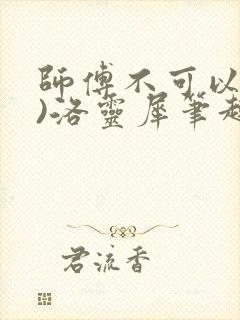 師傅不可以
)-洛靈犀筆趣
君流香